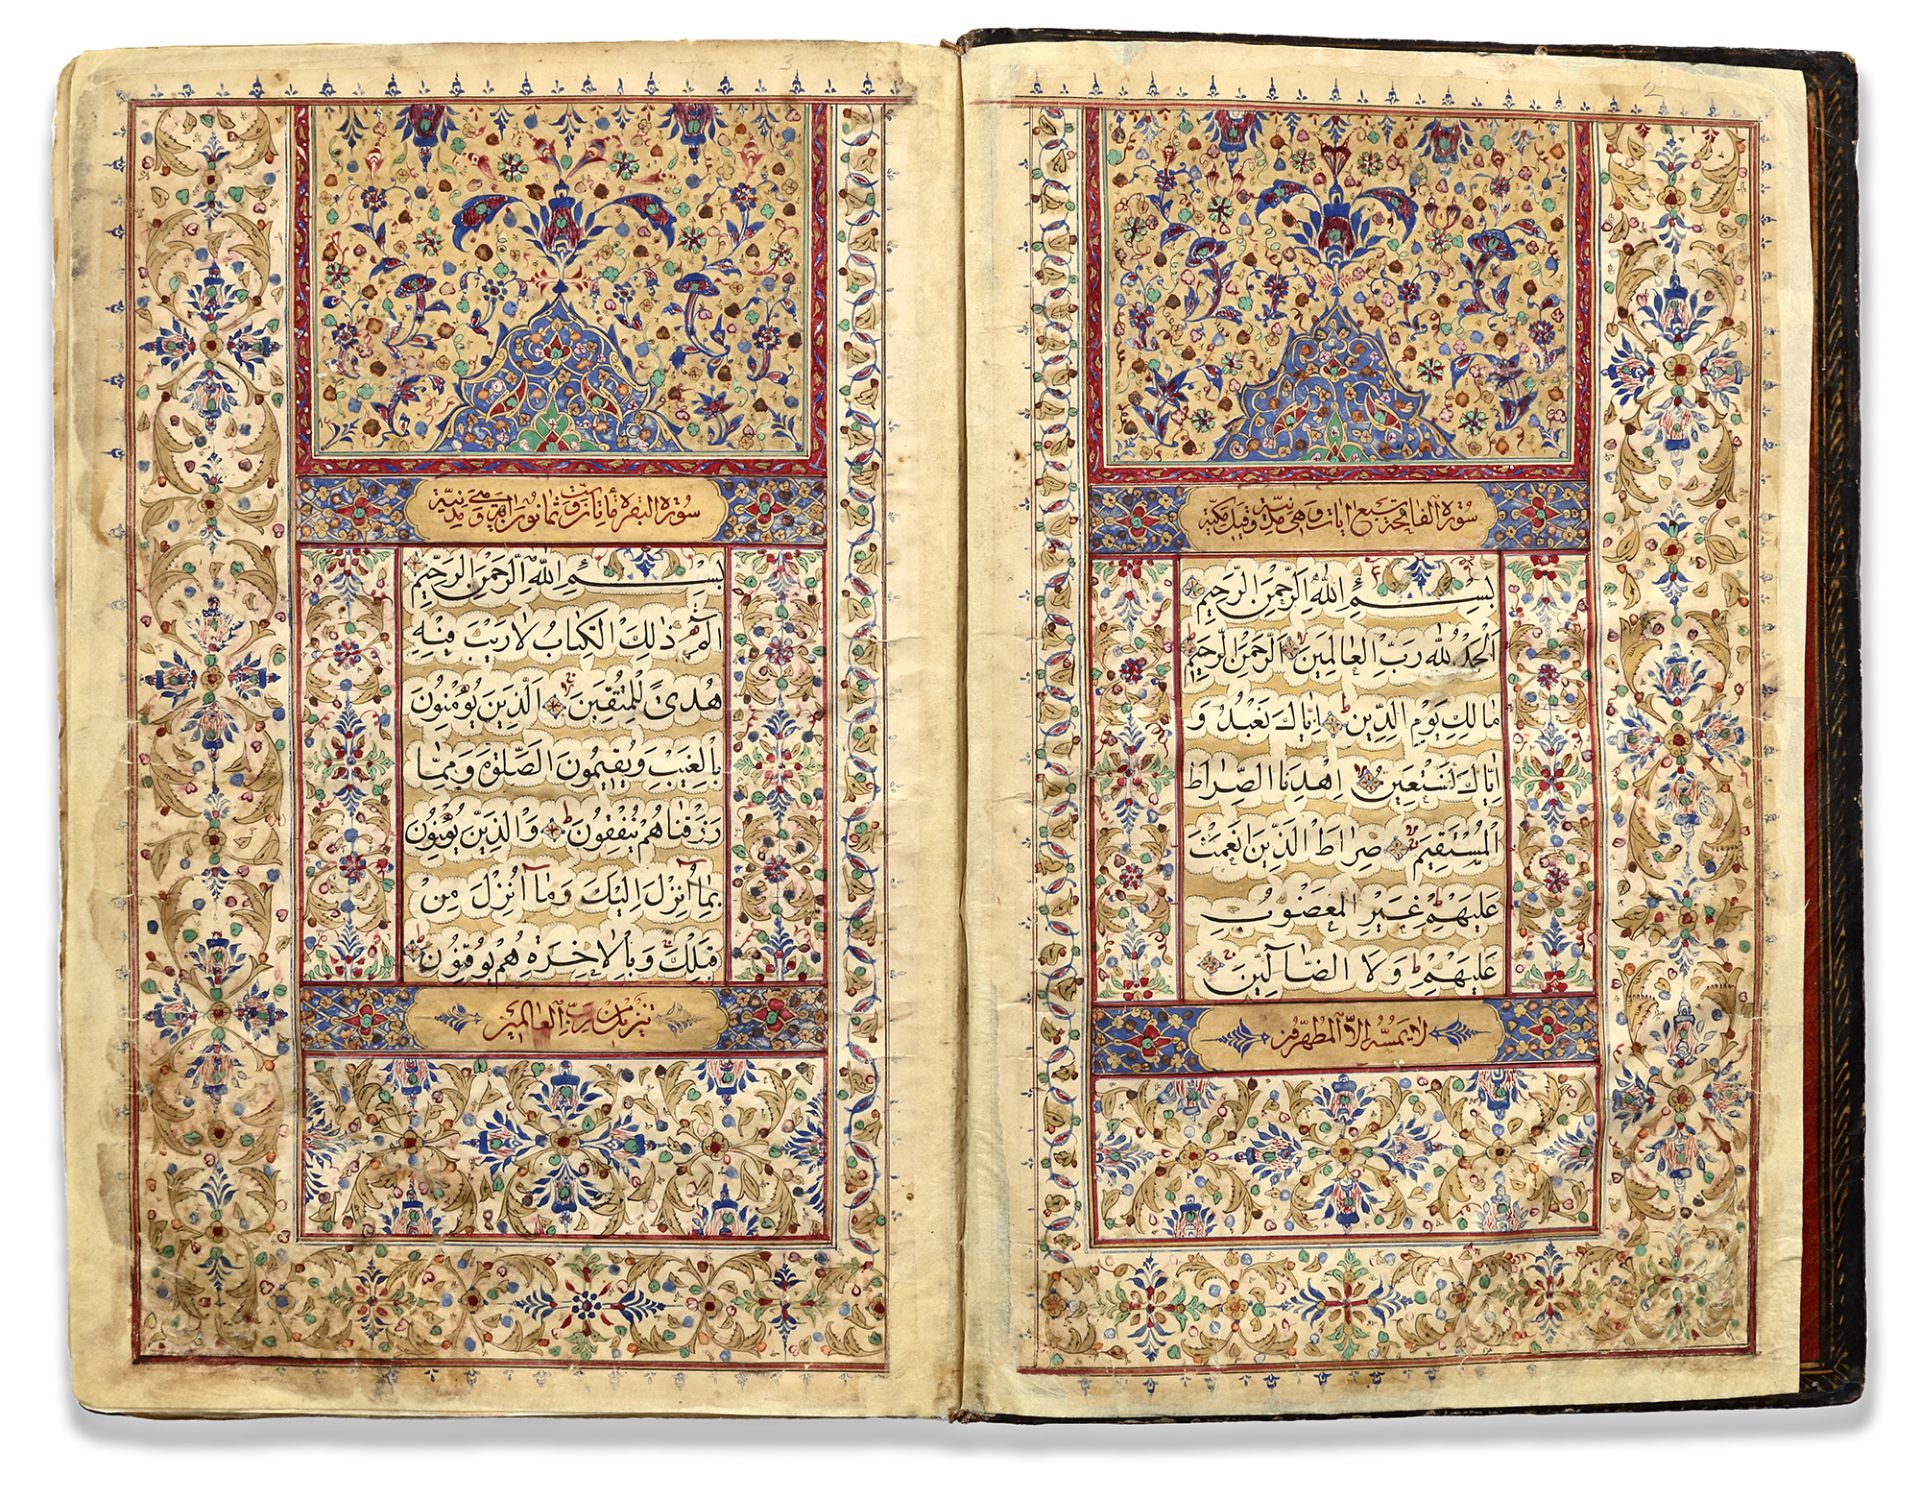 2
سورة الفاتحة سبع ايات وهى مدنية وقيل مكية
بِسْمِ اللهِ الرَّحْمنِ الرَّحِيمِ
اَلْحَمْدُ لِلهِ رَبِّ الْعالَمِينَ الرَّحْمنِ الرَّحِيمِ
مالِكِ يَوْمِ الدِّينِ اِيّاكَ نَعْبُدُ وَ
اِيّاكَ نَسْتَعِينُ اِهْدِنَا الصِّراطَ
الْمُسْتَقِيمَ صِراطَ الَّذِينَ اَنْعَمْتَ
عَلَيْهِمْ غَيْرِ الْمَغْضُوبِ
عَلَيْهِمْ وَلَا الضّآلِّينَ
لا يمسه الا المطهرون
3
سورة البقرة مأتان وست وثمانون اية وهى مدنية
بِسْمِ اللهِ الرَّحْمنِ الرَّحِيمِ
الٓمٓ ذلِكَ الْكِتابُ لا رَيْبَ فِيهِ
هُدىً لِلْمُتَّقِينَ الَّذِينَ يُؤْمِنُونَ
بِالْغَيْبِ وَيُقِيمُونَ الصَّلوةَ وَمِمّا
رَزَقْناهُمْ يُنْفِقُونَ وَالَّذِينَ يُؤْمِنُونَ
بِمآ اُنْزِلَ اِلَيْكَ وَمآ اُنْزِلَ مِنْ
قَبْلِكَ وَبِالْاخِرَةِ هُمْ يُوقِنُونَ
تنزيل من رب العالمين